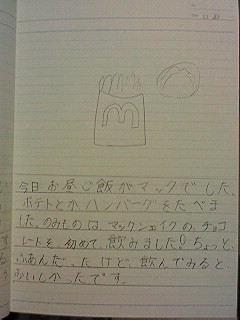 m
今日お昼ご飯がマックでした。
ポテトとかハンバーグをたべま
した。のみものは、マックシェイクの、チョコ
レートを、初めて、飲みました!ちょっと、
ふあんだったけど、飲んでみると
おいしかったです。